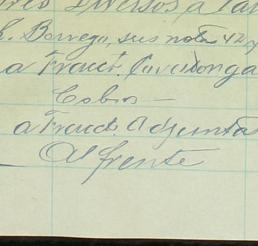 Diversos, a
L. Borrego, sus notas 42 y
a Fraud. Covadonga
Cobros —
a Fraud. Adjunta
Al frente